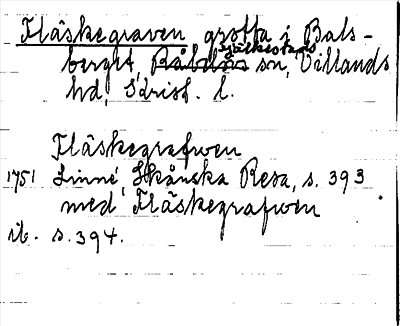 Fläskegraven grotta i Bals-
berget, Råbelövs Fjälkestads sn, Villands
hd, Krist. l.
Fläskegrafwen
1751 Linné, Skånska Resa, s. 393
med Fläskegrafwen
ib. s. 394.